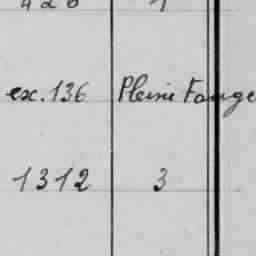 ex. 136 Pleine Fange
1312 3